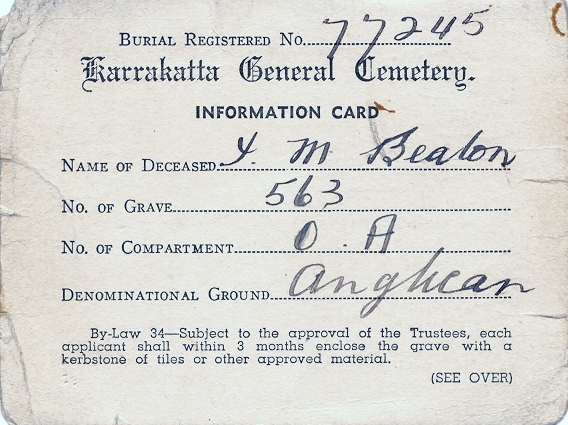 BURIAL REGISTERED No. 77245
Karrakatta General Cemetery.
INFORMATION CARD
NAME OF DECEASED M Beaton
No. OF GRAVE 563
No. OF COMPARTMENT O. A
DENOMINATIONAL GROUND Anglican
By-Law 34—Subject to the approval of the Trustees, each
applicant shall within 3 months enclose the grave with a
kerbstone of tiles or other approved material.
(SEE OVER)